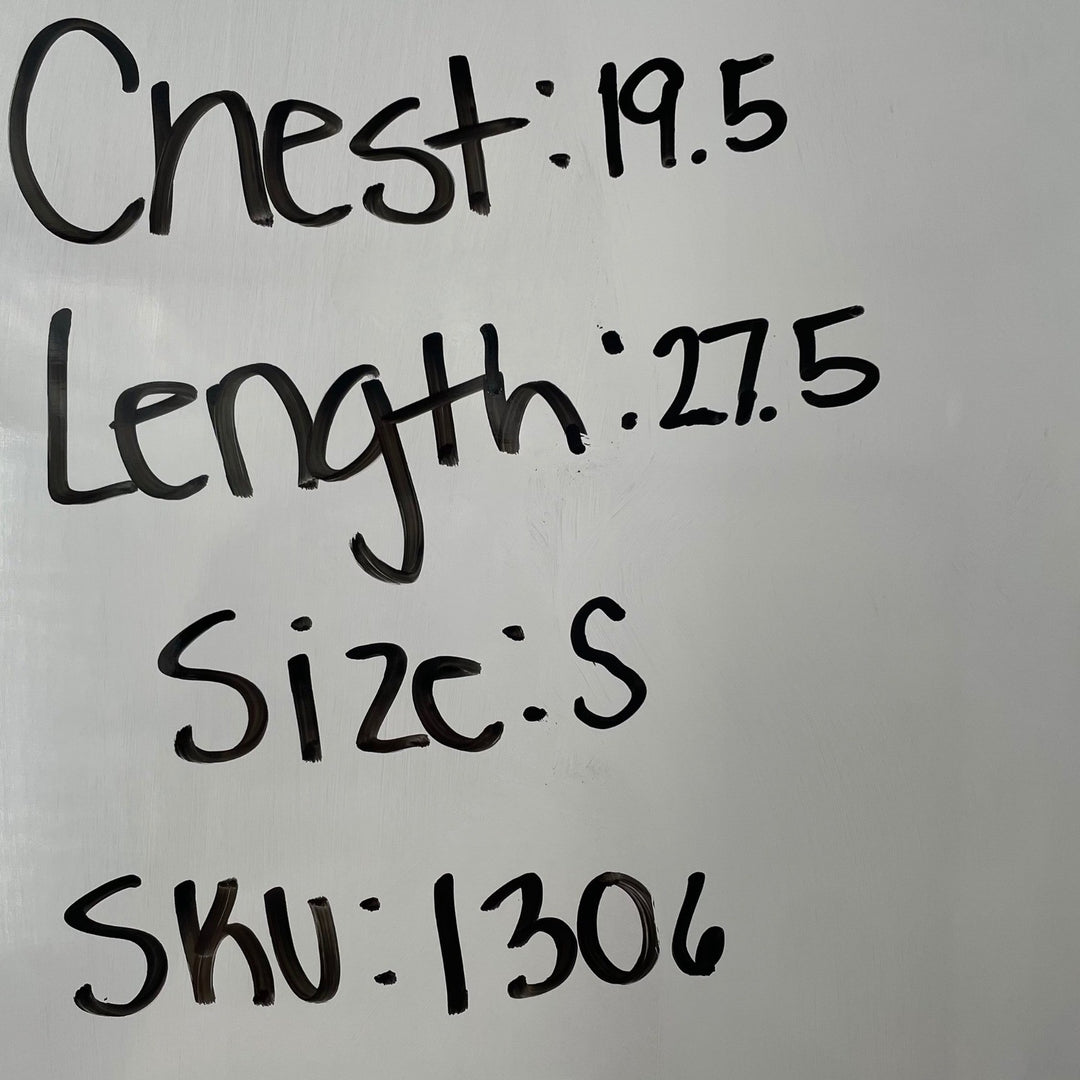 Chest: 19.5
Length: 27.5
Size: S
SKU: 1306